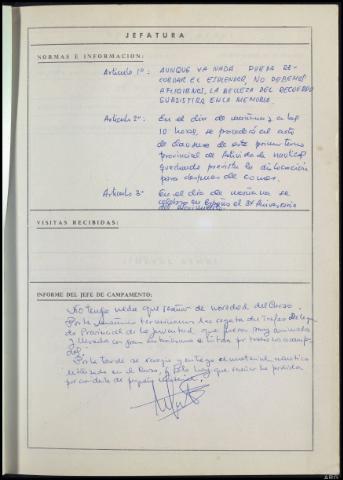 JEFATURA
NORMAS E INFORMACION:
Artículo 1º: AUNQUE YA NADA PUEDA RE-
CORDAR EL ESPLENDOR, NO DEBEMOS
AFLIGIRNOS, LA BELLEZA DEL RECUERDO
SUBSISTIRA EN LA MEMORIA.
Artículo 2º: En el día de mañana, a las
10 horas, se procederá al acto
de clausura de este primer turno
provincial de Actividades nauticas
quedando prevista la dislocación
para despues de comer.
Artículo 3º En el día de mañana se
celebra en España el 3º Aniversario
VISITAS RECIBIDAS:
INFORME DEL JEFE DE CAMPAMENTO:
No tengo nada que reseñar de novedad del Curso.
Por la mañana terminamos la regata del Trofeo Delega
do Provincial de la Juventud que fueron muy animadas
y llevada con gran entusiasmo
Por la tarde se recogio y entrego el material nautico
utilizado en el Curso,